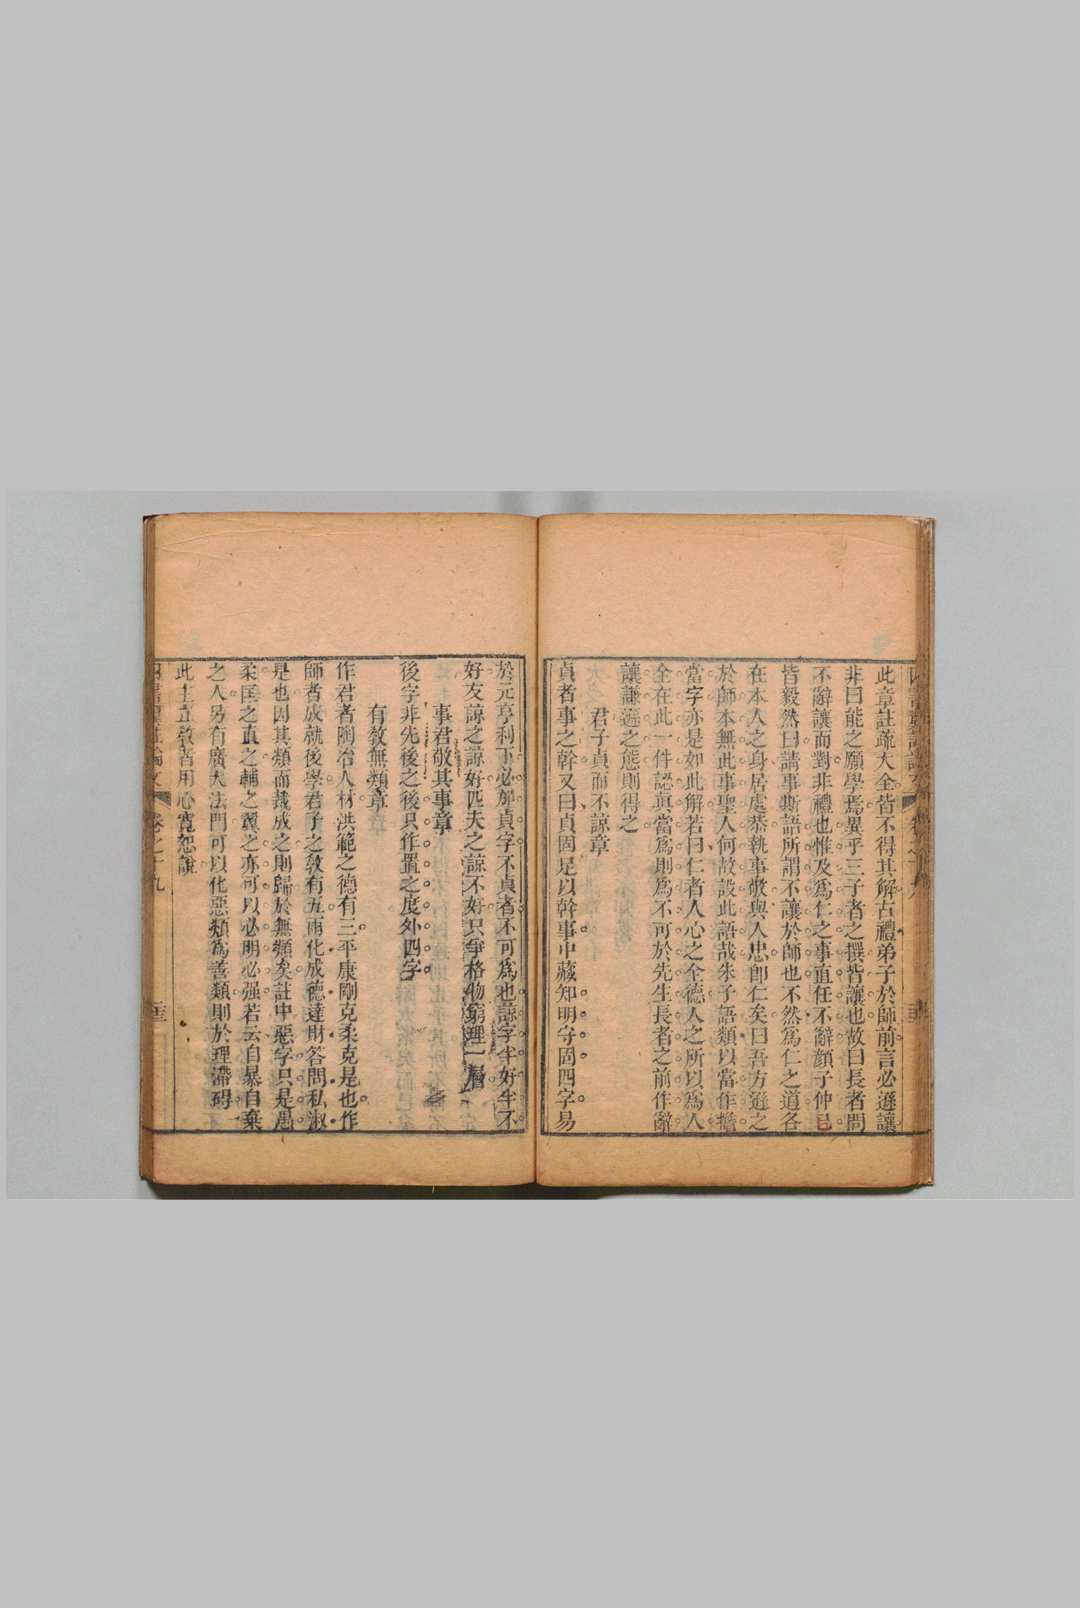 此章註疏大全皆不得其解古禮弟子於師前言必遜讓
非曰能之願學焉異乎三子者之撰皆讓也故曰長者問
不辭讓而對非禮也惟及為仁之事直任不辭顏子仲弓
皆毅然曰請事斯語所謂不讓於師也不然為仁之道各
在本人之身居處恭執事敬與人忠卽仁矣曰吾方遜之
於師本無此事聖人何故設此語哉朱子語類以當作擔
當字亦是如此解若曰仁者人心之全德人之所以為人
全在此一件認真當為則為不可於先生長者之前作辭
讓謙遜之態則得之
君子貞而不諒章
貞者事之幹又曰貞固足以幹事中藏知明守固四字易
於元亨利下必加貞字不貞者不可為也諒字半好半不
好友諒之諒好匹夫之諒不好只爭格物窮理一層
事君敬其事章
後字非先後之後只作置之度外四字
有教無類章
作君者陶冶人材洪範之德有三平康剛克柔克是也作
師者成就後學君子之教有五雨化成德達財答問私淑
是也因其類而裁成之則歸於無類矣註中惡字只是愚
柔匡之直之輔之翼之亦可以必明必强若云自暴自棄
之人另有廣大法門可以化惡類為善類則於理滯碍
此主立教者用心寬恕說
卷之十九